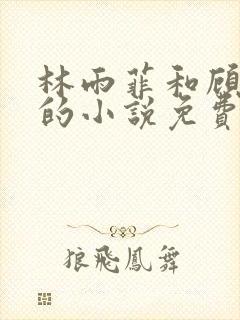 林雨菲和顾
的小說免費
狼飛鳳舞